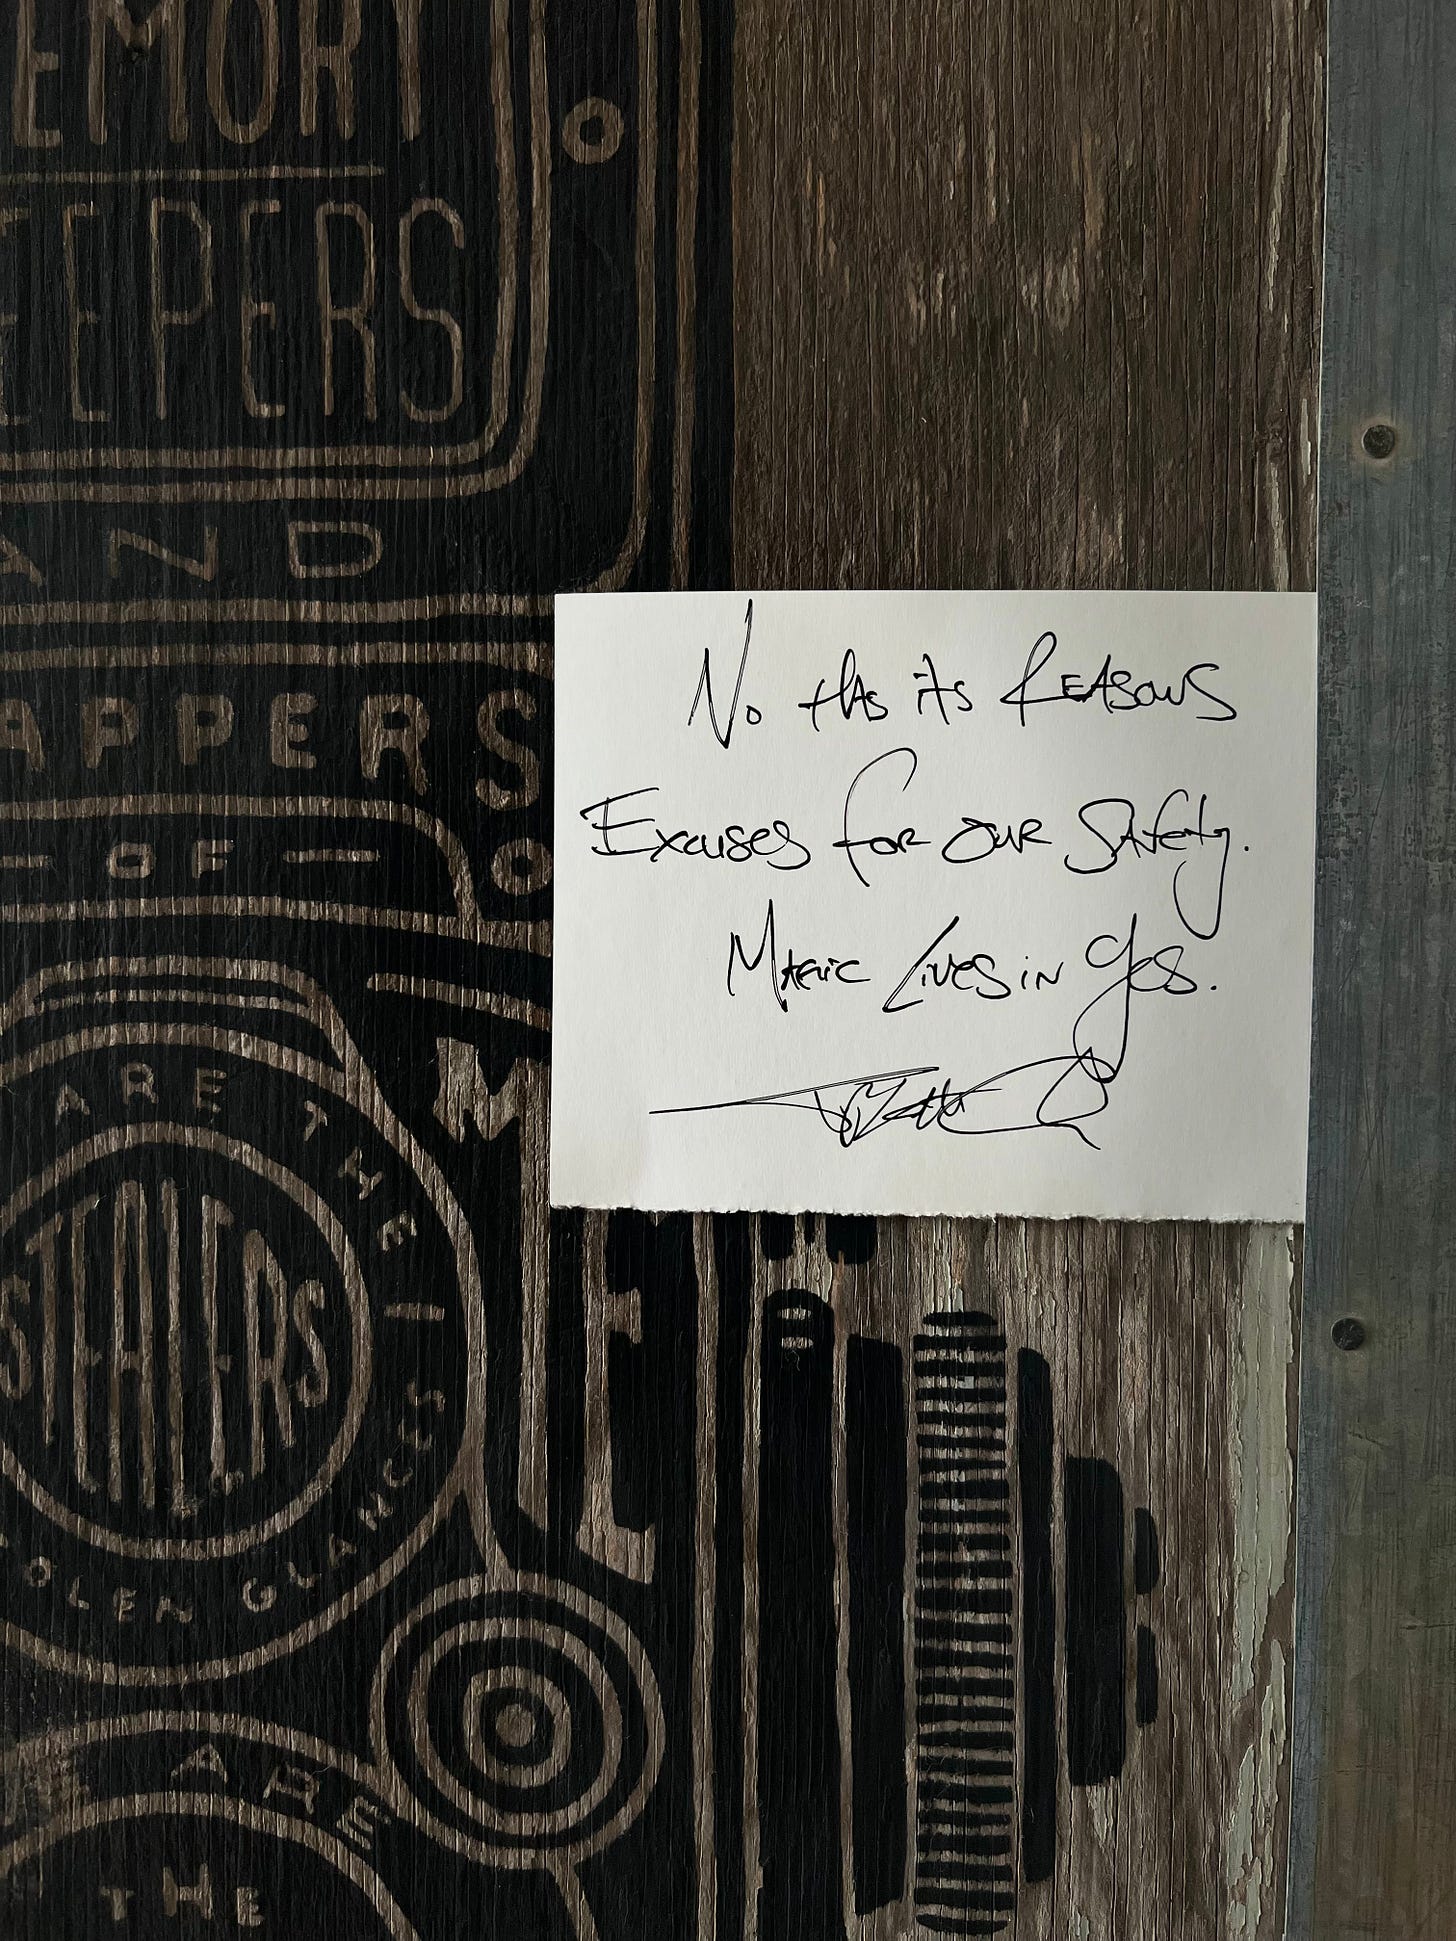 EMORY
EEPERS
AND
APPERS
OF
No HAs its REASONS
Excuses for our Safety.
Magic Lives in Yes.
ARE THE
STEALERS
OLEN GLANCES
ARE
THE